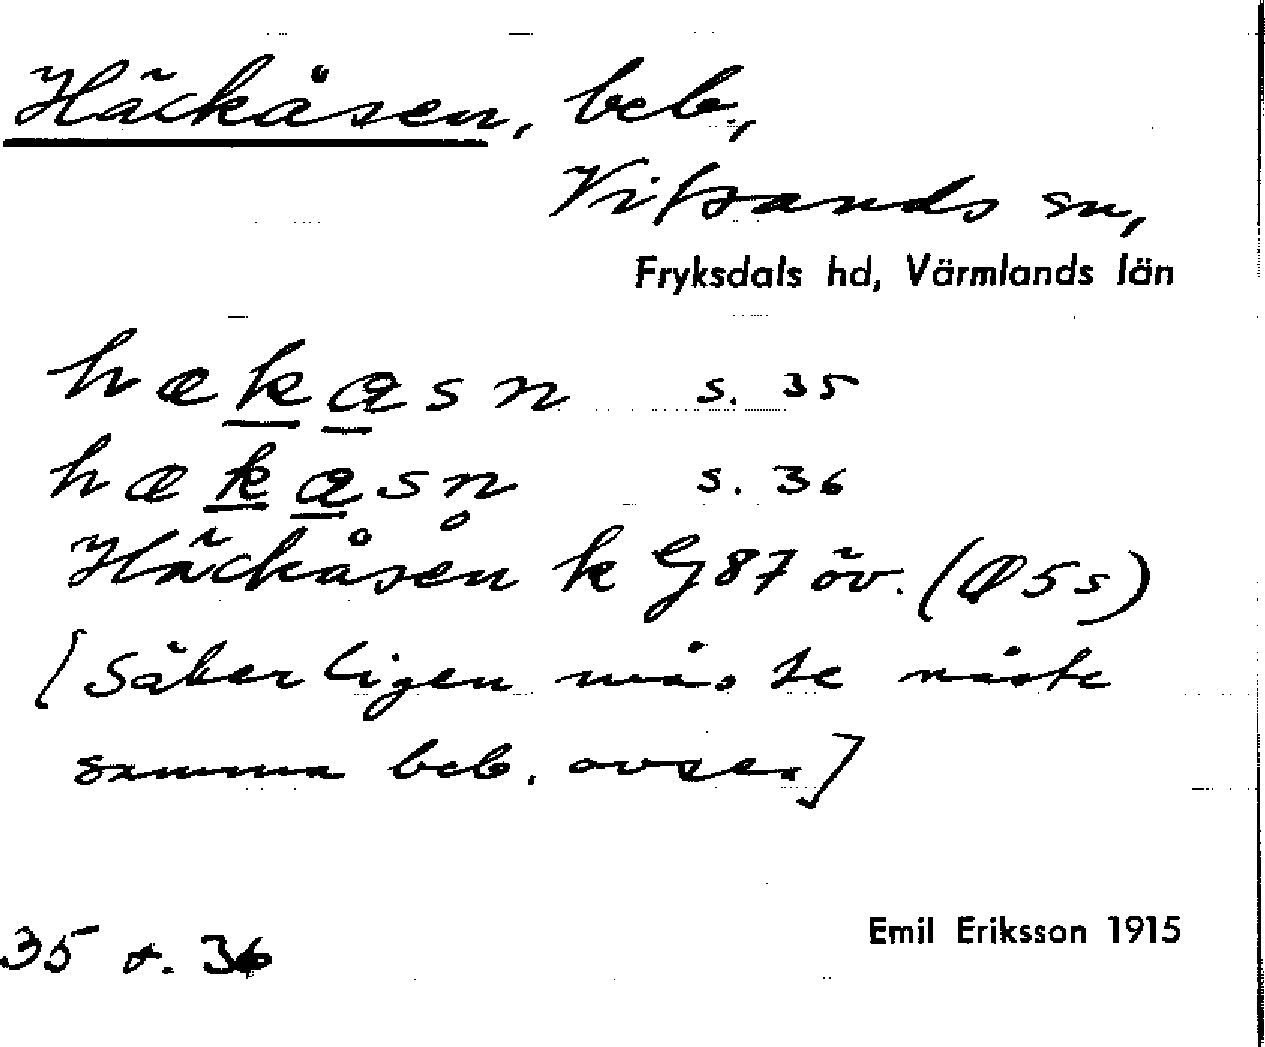 Häckåsen, beb.,
Vitsands sn,
Fryksdals hd, Värmlands län
hækasn s. 35
hækasn s. 36
Häckåsen k G87 öv. (Ø5s)
[Säkerligen måste måste
samma beb. avses]
35 o. 36
Emil Eriksson 1915